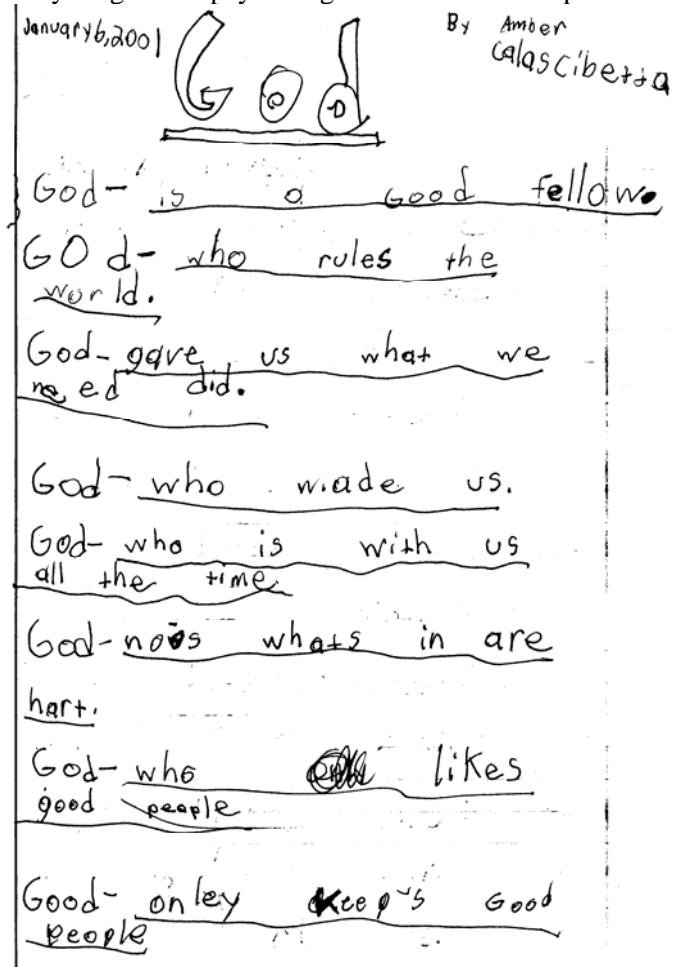 January 6, 2001
By Amber
Calascibetta
God
God- is a Good fellow.
GOd- who rules the
world.
God- gave us what we
need did.
God- who made us.
God- who is with us
all the time
God- nos whats in are
hart.
God- who likes
good people
Good- onley keep's Good
people